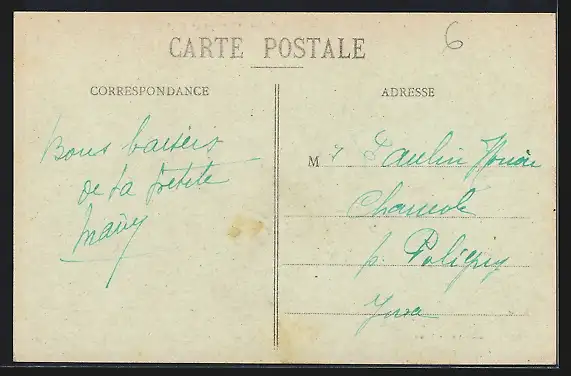 CARTE POSTALE
6
CORRESPONDANCE
Bons baisers
de ta petite
Mavy
ADRESSE
M r Paulin
Chamole
p. Poligny
Jura